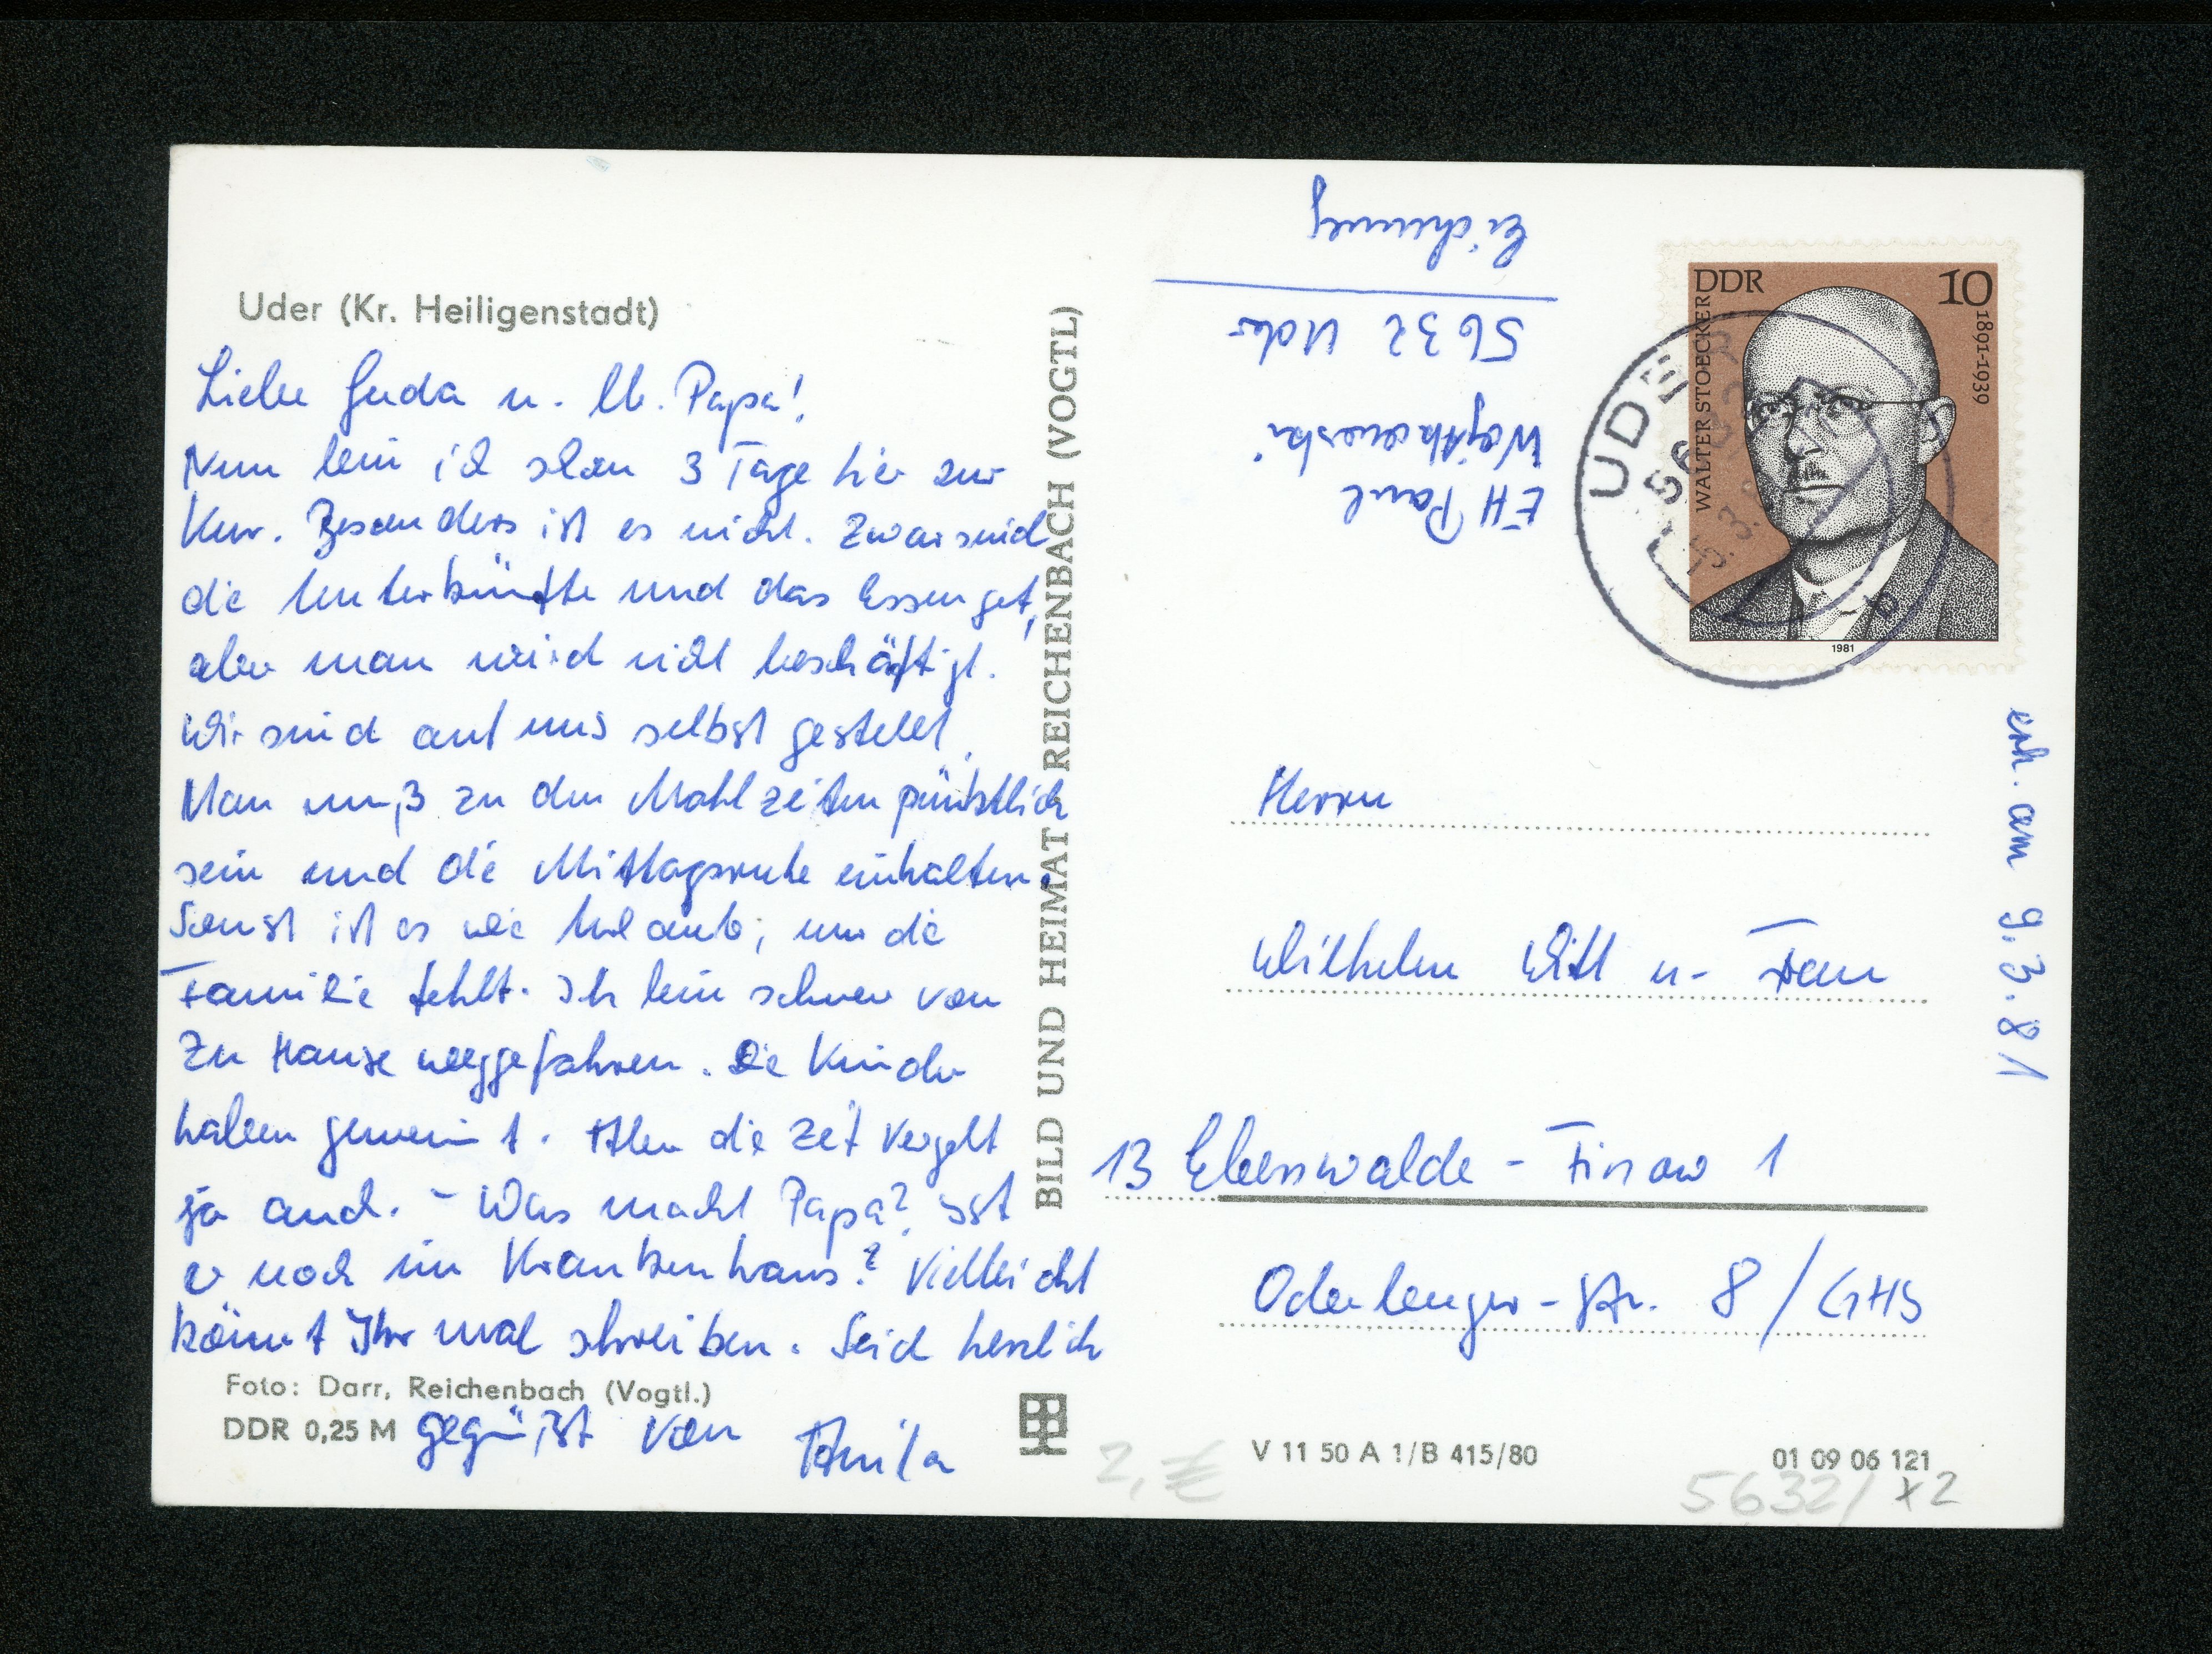 Uder (Kr. Heiligenstadt)
Liebe Guda u. lb. Papa!
Nun bin ich schon 3 Tage hier zur
Kur. Besonders ist es nicht. Zwar sind
die Unterkünfte und das Essen gut,
aber man wird nicht beschäftigt.
Wir sind auf uns selbst gestellt.
Man muß zu den Mahlzeiten pünktlich
sein und die Mittagsruhe einhalten.
Sonst ist es wie Urlaub, nur die
Familie fehlt. Ich bin schwer von
Zu Hause weggefahren. Die Kinder
haben geweint. Aber die Zeit vergeht
ja auch. - Was macht Papa? Ist
er noch im Krankenhaus? Vielleicht
könnt Ihr mal schreiben. Seid herzlich
gegrüßt von Anita
Foto: Darr, Reichenbach (Vogtl.)
DDR 0,25 M
BILD UND HEIMAT REICHENBACH (VOGTL)
EH Paul
5632 Uder
Eichenweg
DDR 10
WALTER STOECKER
1891-1939
1981
UDER
b
erh. am 9.3.81
Herrn
Wilhelm Witt u. Frau
13 Eberswalde - Finow 1
Oderberger-Str. 8/GHS
V 11 50 A 1/B 415/80
01 09 06 121
2,- €
5632/ x2